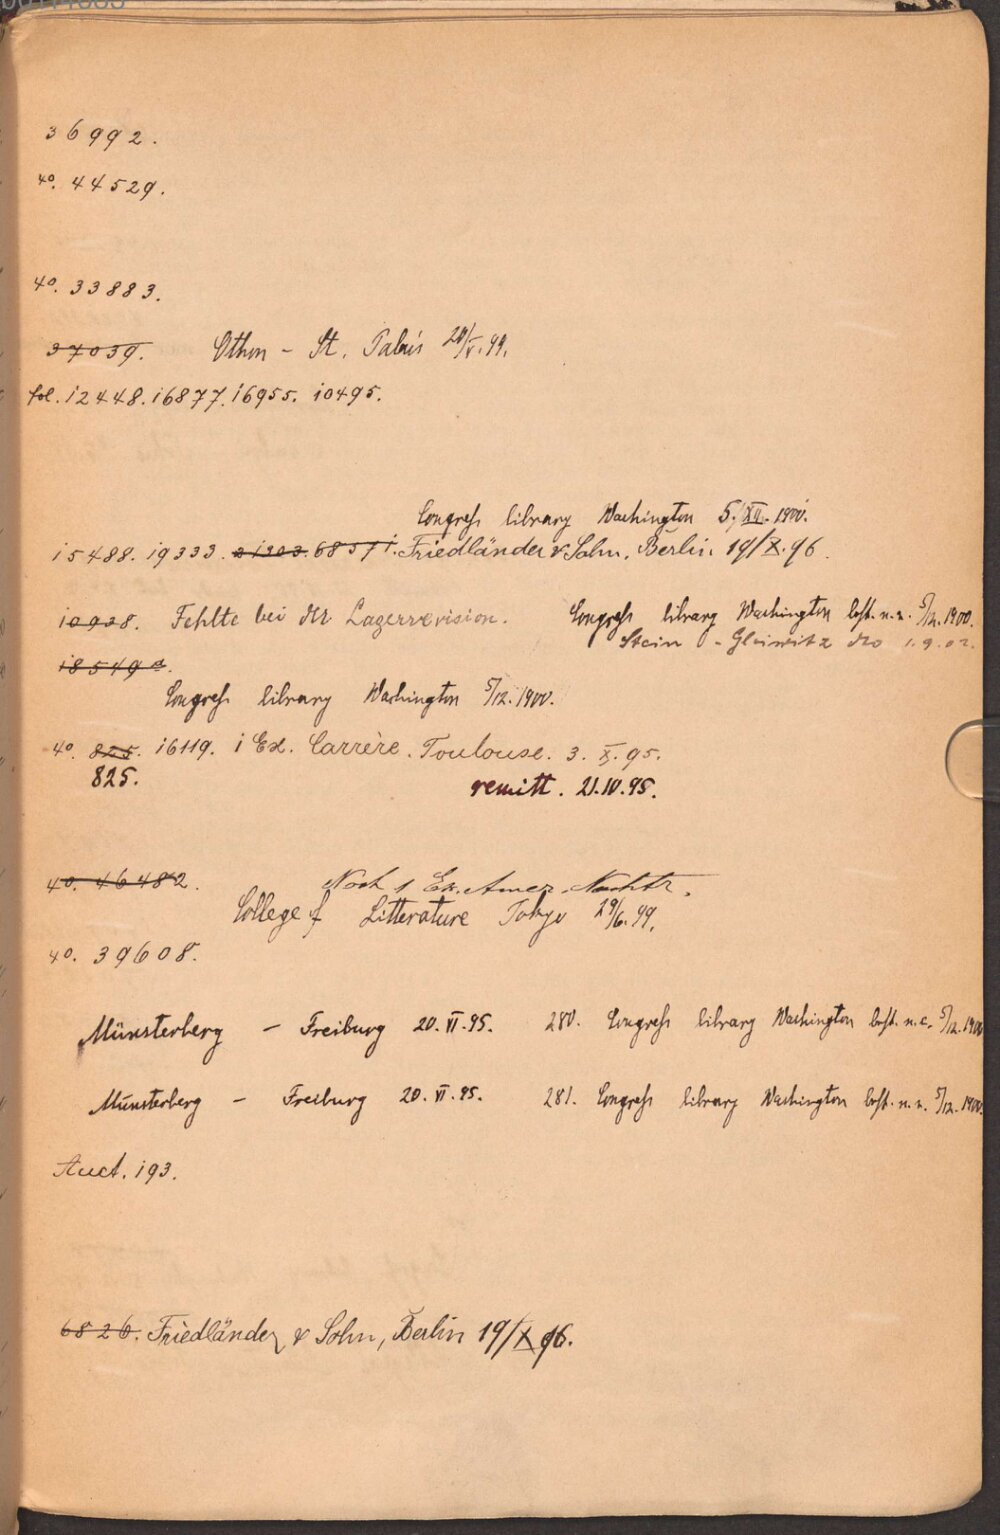 36992.
4o. 44529.
4o. 33883.
37039. Othon - St. Palais 20/V.99.
fol. 12448. 16877. 16955. 10495.
Congress library Washington 5./XII. 1900.
15488. 19333. 21303. 68571. Friedländer & Sohn, Berlin 19/X.96.
10928. Fehlte bei der Lagerrevision. Congress library Washington best. n.r. 5/12.1900.
Stein - Gleiwitz dto 1.9.02.
18549a.
Congress library Washington 5/12.1900.
4o 825. 16119. 1 Ex. Carrère. Toulouse. 3. X. 95.
825. remitt. 21.10.95.
4o. 46482. Noch 1 Ex. Amer. Nachtr.
College of Litterature Tokyo 29/6.99.
4o. 39608.
Münsterberg - Freiburg 20.VI.95. 280. Congress library Washington best. n.r. 5/12.1900
Münsterberg - Freiburg 20.VI.95. 281. Congress library Washington best. n.r. 5/12.1900.
Auct. 193.
6826. Friedländer & Sohn, Berlin 19/X 96.